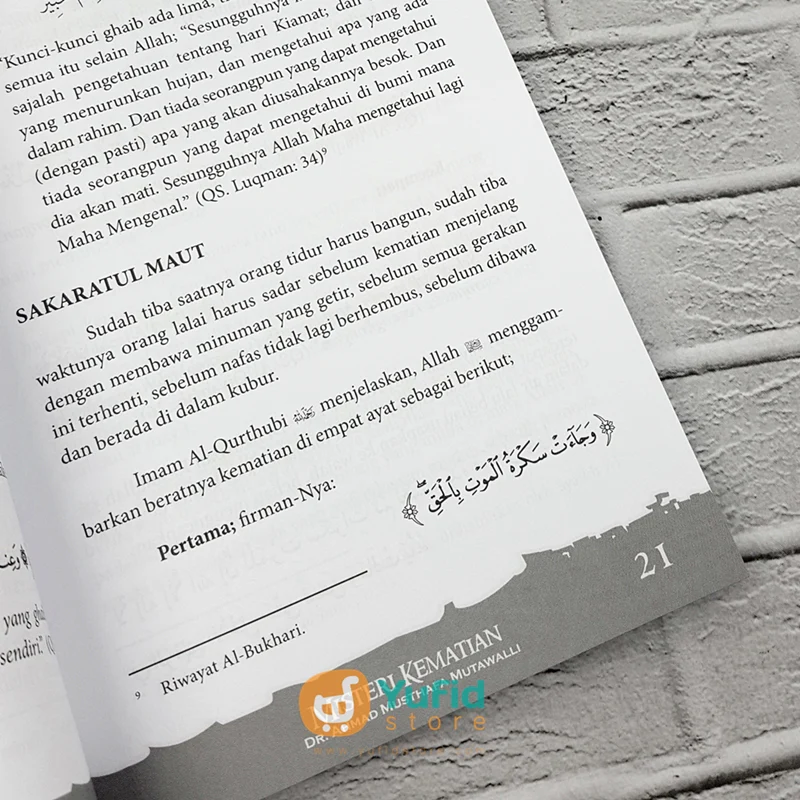 "Kunci-kunci ghaib ada lima,
semua itu selain Allah; "Sesungguhnya
sajalah pengetahuan tentang hari Kiamat; dan
yang menurunkan hujan, dan mengetahui apa yang ada
dalam rahim. Dan tiada seorangpun yang dapat mengetahui
(dengan pasti) apa yang akan diusahakannya besok. Dan
tiada seorangpun yang dapat mengetahui di bumi mana
dia akan mati. Sesungguhnya Allah Maha mengetahui lagi
Maha Mengenal." (QS. Luqman: 34)⁹
SAKARATUL MAUT
Sudah tiba saatnya orang tidur harus bangun, sudah tiba
waktunya orang lalai harus sadar sebelum kematian menjelang
dengan membawa minuman yang getir, sebelum semua gerakan
ini terhenti, sebelum nafas tidak lagi berhembus, sebelum dibawa
dan berada di dalam kubur.
Imam Al-Qurthubi menjelaskan, Allah ﷺ menggam-
barkan beratnya kematian di empat ayat sebagai berikut;
Pertama; firman-Nya:
﴿وَجَآءَتْ سَكْرَةُ ٱلْمَوْتِ بِٱلْحَقِّ ۖ﴾
⁹ Riwayat Al-Bukhari.
21
MISTERI KEMATIAN
DR. AHMAD MUSTHAFA MUTAWALLI
yang
sendiri."
Yufid
store